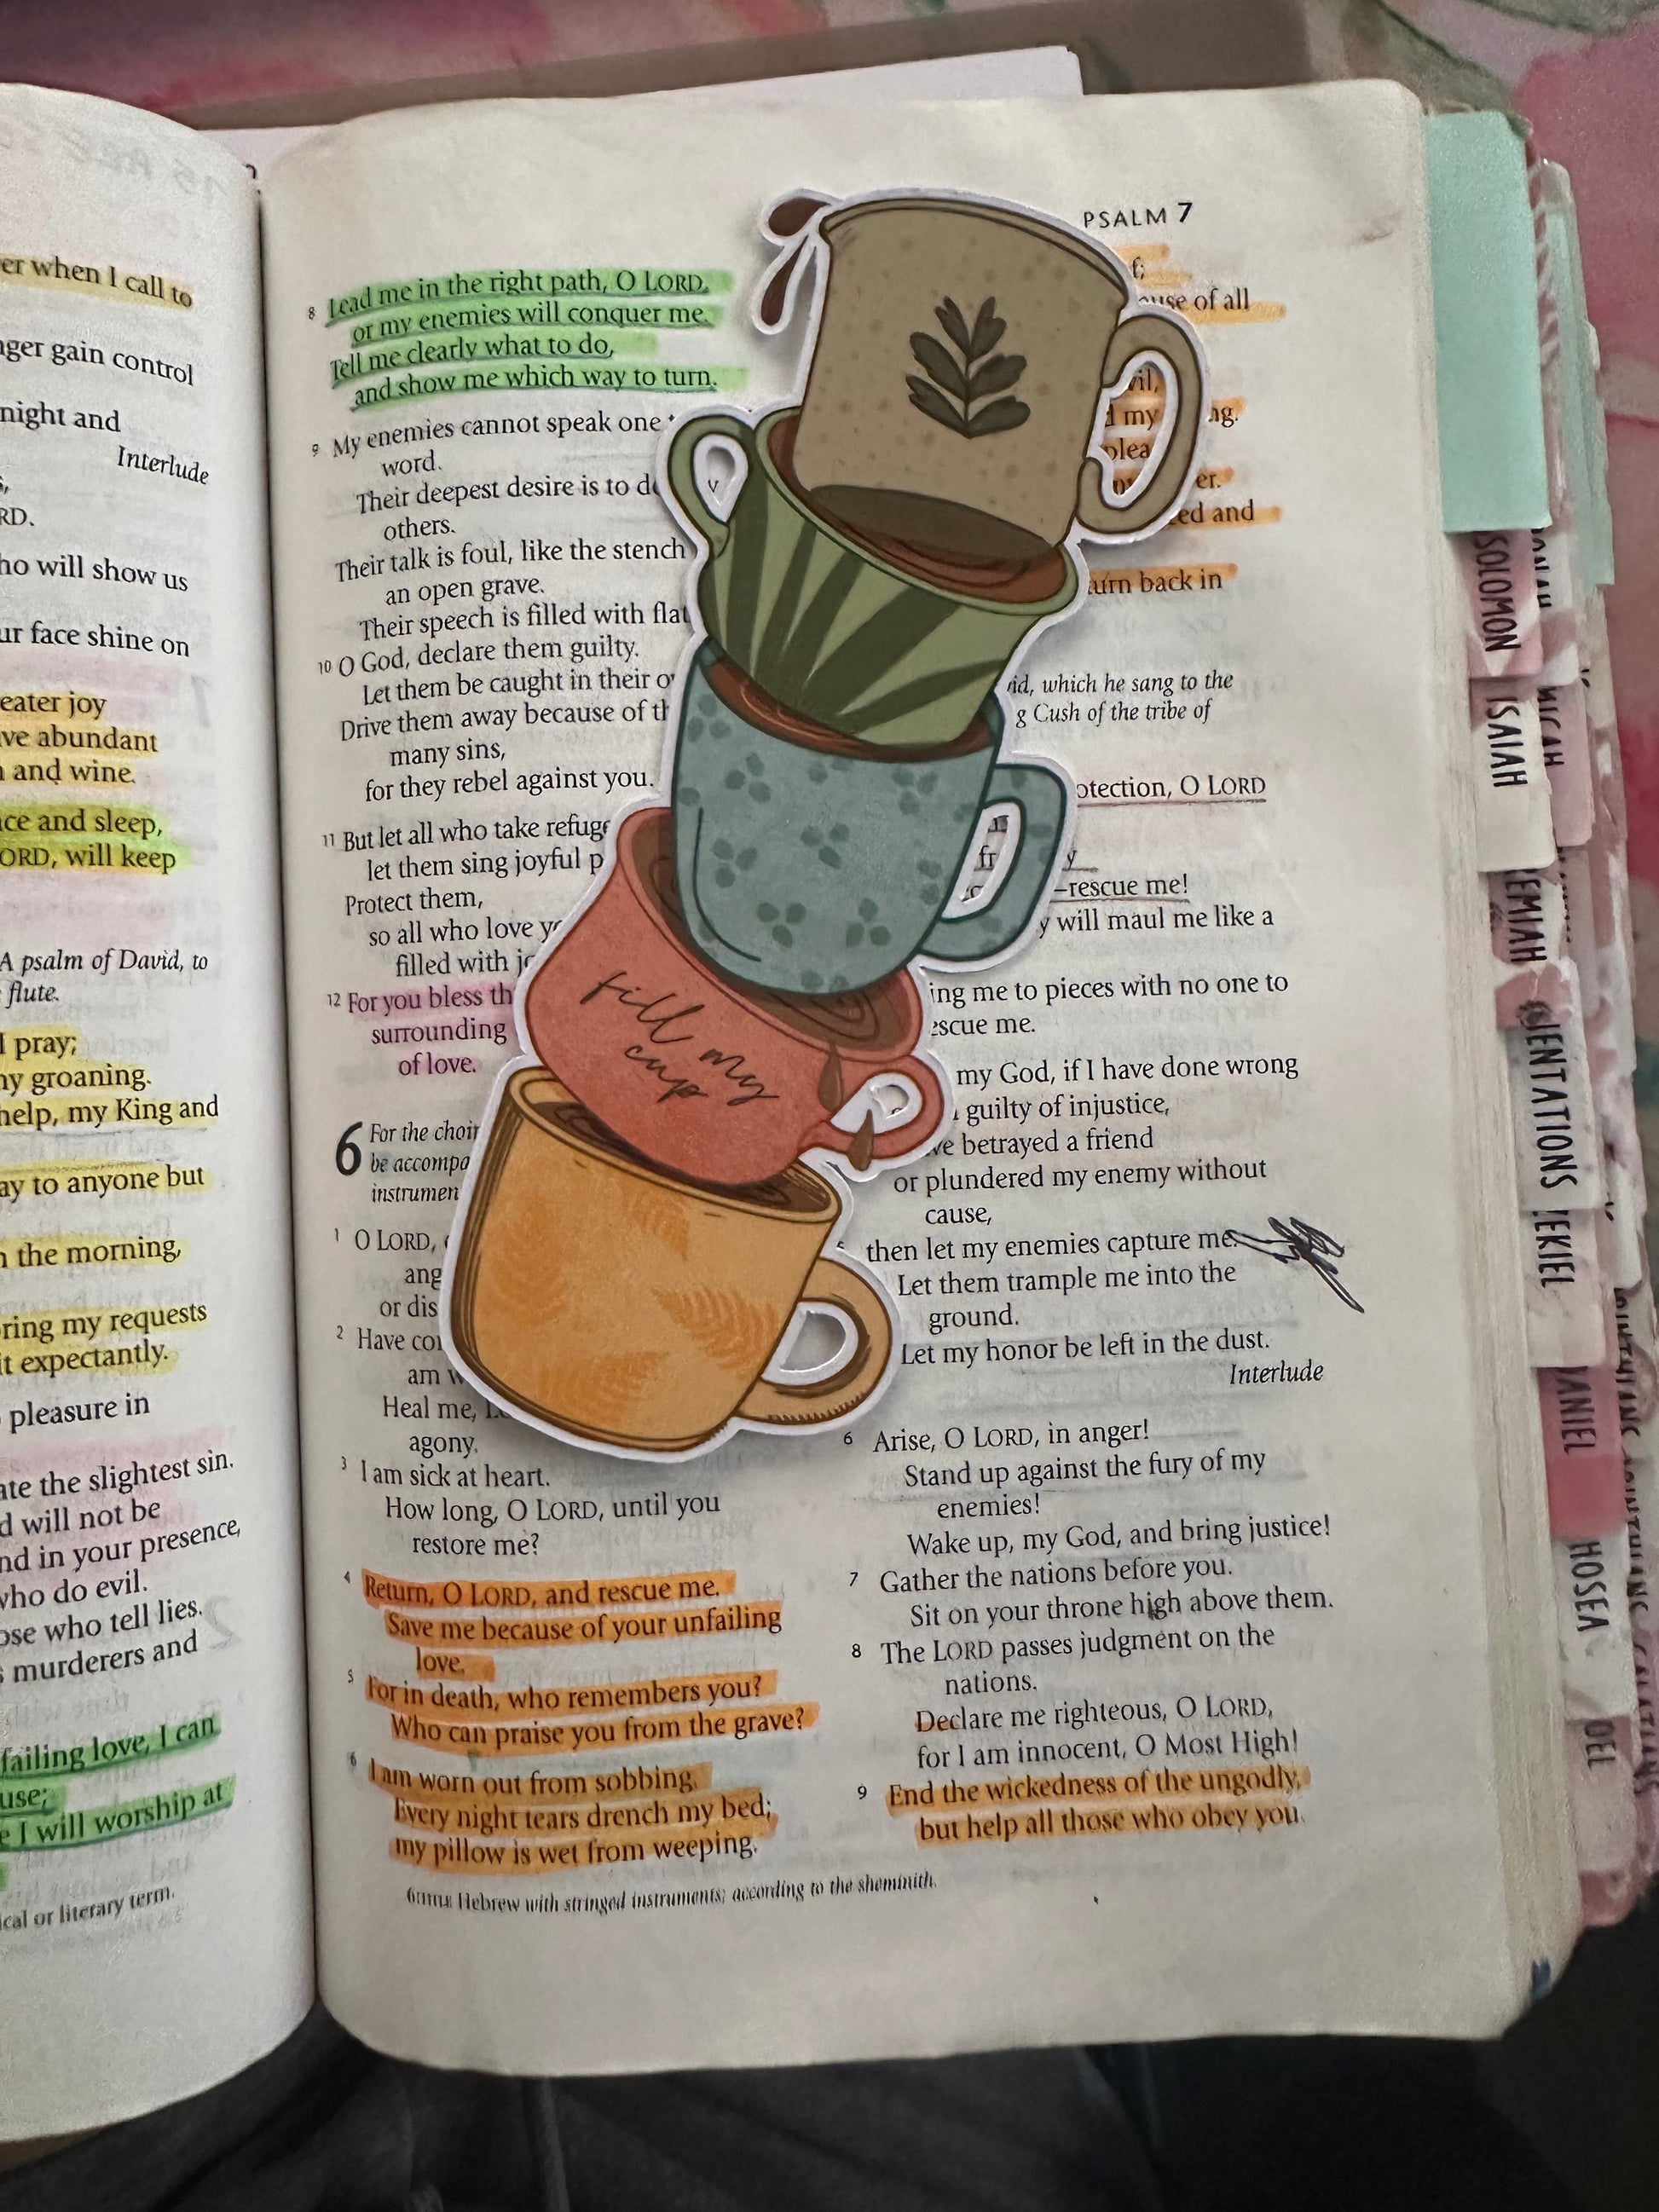 er when I call to
ger gain control
night and
Interlude
RD.
ho will show us
ur face shine on
eater joy
ve abundant
and wine.
ce and sleep,
ORD, will keep
A psalm of David, to
flute.
I pray;
ny groaning.
help, my King and
ay to anyone but
n the morning,
ring my requests
it expectantly.
pleasure in
ate the slightest sin.
d will not be
nd in your presence,
who do evil.
ose who tell lies.
murderers and
failing love, I can
use;
e I will worship at
ical or literary term.
PSALM 7
8 Lead me in the right path, O LORD,
or my enemies will conquer me.
Tell me clearly what to do,
and show me which way to turn.
9 My enemies cannot speak one
word.
Their deepest desire is to de
others.
Their talk is foul, like the stench
an open grave.
Their speech is filled with flat
10 O God, declare them guilty.
Let them be caught in their o
Drive them away because of th
many sins,
for they rebel against you.
11 But let all who take refuge
let them sing joyful p
Protect them,
so all who love yo
filled with jo
12 For you bless th
surrounding
of love.
6 For the choir
be accompa
instrumen
1 O LORD,
ang
or dis
2 Have co
am w
Heal me,
agony.
3 I am sick at heart.
How long, O LORD, until you
restore me?
4 Return, O LORD, and rescue me.
Save me because of your unfailing
love.
5 For in death, who remembers you?
Who can praise you from the grave?
6 I am worn out from sobbing.
Every night tears drench my bed;
my pillow is wet from weeping.
6:TITLE Hebrew with stringed instruments; according to the sheminith.
fill my
cup
f;
ause of all
vil,
d my ng.
plea
er.
ed and
turn back in
vid, which he sang to the
g Cush of the tribe of
otection, O LORD
fr y
—rescue me!
y will maul me like a
ing me to pieces with no one to
escue me.
my God, if I have done wrong
guilty of injustice,
ve betrayed a friend
or plundered my enemy without
cause,
then let my enemies capture me.
Let them trample me into the
ground.
Let my honor be left in the dust.
Interlude
6 Arise, O LORD, in anger!
Stand up against the fury of my
enemies!
Wake up, my God, and bring justice!
7 Gather the nations before you.
Sit on your throne high above them.
8 The LORD passes judgment on the
nations.
Declare me righteous, O LORD,
for I am innocent, O Most High!
9 End the wickedness of the ungodly,
but help all those who obey you.
SOLOMON
ISAIAH
EMIAH
MENTATIONS
EKIEL
DANIEL
HOSEA
OEL
ONAH
MICAH